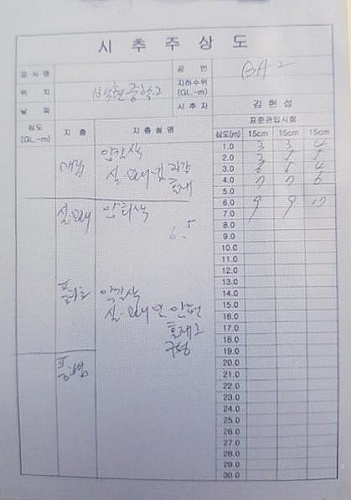 시 추 주 상 도
공 사 명
공 번
BH-2
위 치
지하수위
(GL.-m)
날 짜
시 추 자
김 헌 성
심도
(GL.-m)
지 층
지 층 설 명
심도(m)
표준관입시험
15cm 15cm 15cm
1.0 3 3 4
2.0 3
3.0 4
4.0 7 7 6
5.0
6.0 9 9
7.0
8.0
9.0
10.0
11.0
12.0
13.0
14.0
15.0
16.0
17.0
18.0
19.0
20.0
21.0
22.0
23.0
24.0
25.0
26.0
27.0
28.0
29.0
30.0
매립
암갈색
실트모래 및 자갈
실모래
암회색
6.5
풍화토
암갈색
구성
풍화암